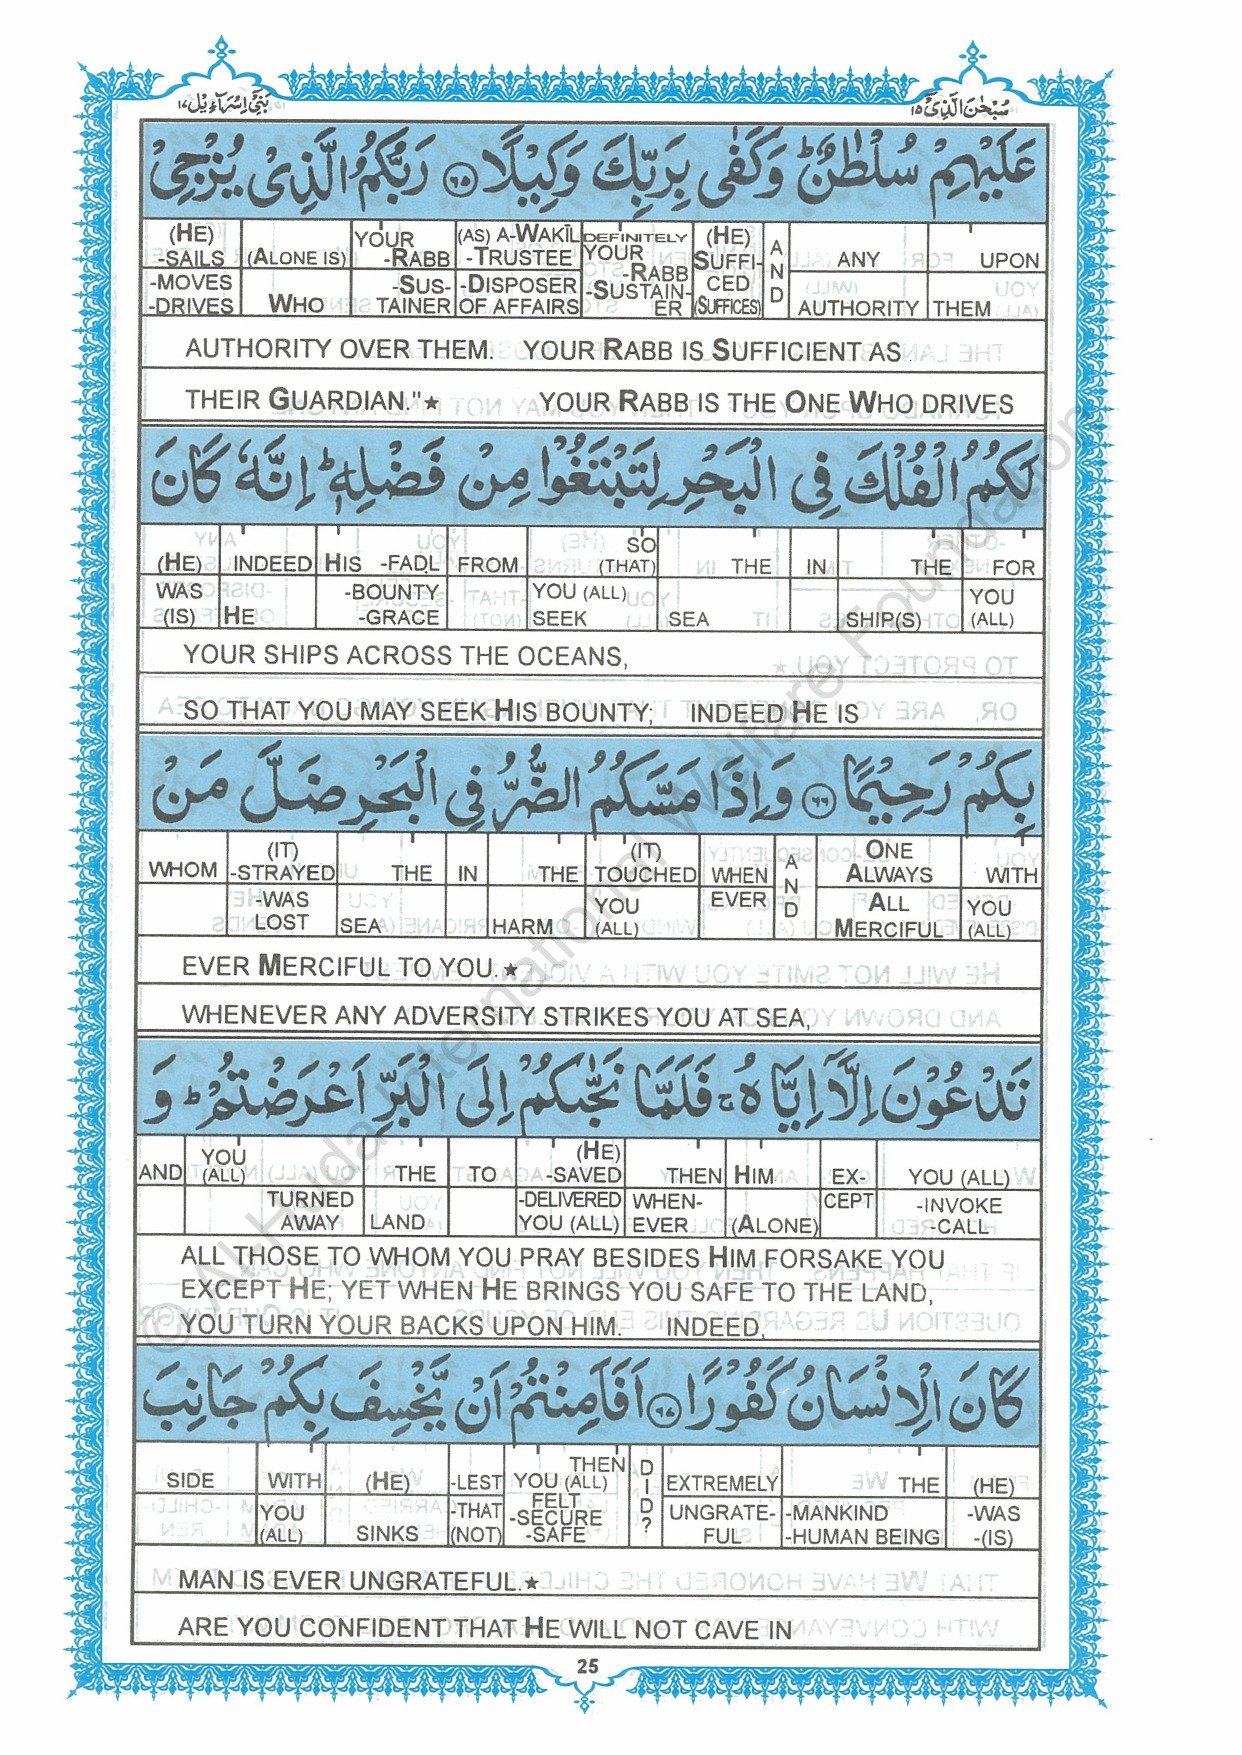 بَنِيْٓ اِسْرَآءِيْل ١٧
سُبْحٰنَ الَّذِيْٓ ١٥
عَلَيْهِمْ سُلْطٰنٌ ؕ وَكَفٰى بِرَبِّكَ وَكِيْلًا ﴿٦٥﴾ رَبُّكُمُ الَّذِيْ يُزْجِيْ
(HE) -SAILS -MOVES -DRIVES | (ALONE IS) WHO | YOUR -RABB -SUSTAINER | (AS) A-WAKĪL -TRUSTEE -DISPOSER OF AFFAIRS | DEFINITELY YOUR -RABB -SUSTAINER | (HE) SUFFICED (SUFFICES) | AND | ANY AUTHORITY | UPON THEM
AUTHORITY OVER THEM. YOUR RABB IS SUFFICIENT AS
THEIR GUARDIAN."★ YOUR RABB IS THE ONE WHO DRIVES
لَكُمُ الْفُلْكَ فِي الْبَحْرِ لِتَبْتَغُوْا مِنْ فَضْلِهٖ ؕ اِنَّهٗ كَانَ
(HE) WAS (IS) | INDEED HE | HIS -FAḌL -BOUNTY -GRACE | FROM | SO (THAT) YOU (ALL) SEEK | THE SEA | IN | THE SHIP(S) | FOR YOU (ALL)
YOUR SHIPS ACROSS THE OCEANS,
SO THAT YOU MAY SEEK HIS BOUNTY; INDEED HE IS
بِكُمْ رَحِيْمًا ﴿٦٦﴾ وَاِذَا مَسَّكُمُ الضُّرُّ فِي الْبَحْرِ ضَلَّ مَنْ
WHOM | (IT) -STRAYED -WAS LOST | THE SEA | IN | THE HARM | (IT) TOUCHED YOU (ALL) | WHEN EVER | AND | ONE ALWAYS ALL MERCIFUL | WITH YOU (ALL)
EVER MERCIFUL TO YOU.★
WHENEVER ANY ADVERSITY STRIKES YOU AT SEA,
تَدْعُوْنَ اِلَّآ اِيَّاهُ ۚ فَلَمَّا نَجّٰىكُمْ اِلَى الْبَرِّ اَعْرَضْتُمْ ؕ وَ
AND | YOU (ALL) TURNED AWAY | THE LAND | TO | (HE) -SAVED -DELIVERED YOU (ALL) | THEN WHEN-EVER | HIM (ALONE) | EX-CEPT | YOU (ALL) -INVOKE -CALL
ALL THOSE TO WHOM YOU PRAY BESIDES HIM FORSAKE YOU
EXCEPT HE; YET WHEN HE BRINGS YOU SAFE TO THE LAND,
YOU TURN YOUR BACKS UPON HIM. INDEED,
كَانَ الْاِنْسَانُ كَفُوْرًا ﴿٦٧﴾ اَفَاَمِنْتُمْ اَنْ يَّخْسِفَ بِكُمْ جَانِبَ
SIDE | WITH YOU (ALL) | (HE) SINKS | -LEST -THAT (NOT) | THEN YOU (ALL) FELT -SECURE -SAFE | DID? | EXTREMELY UNGRATE-FUL | THE -MANKIND -HUMAN BEING | (HE) -WAS -(IS)
MAN IS EVER UNGRATEFUL.★
ARE YOU CONFIDENT THAT HE WILL NOT CAVE IN
25
© Al Huda International Welfare Foundation